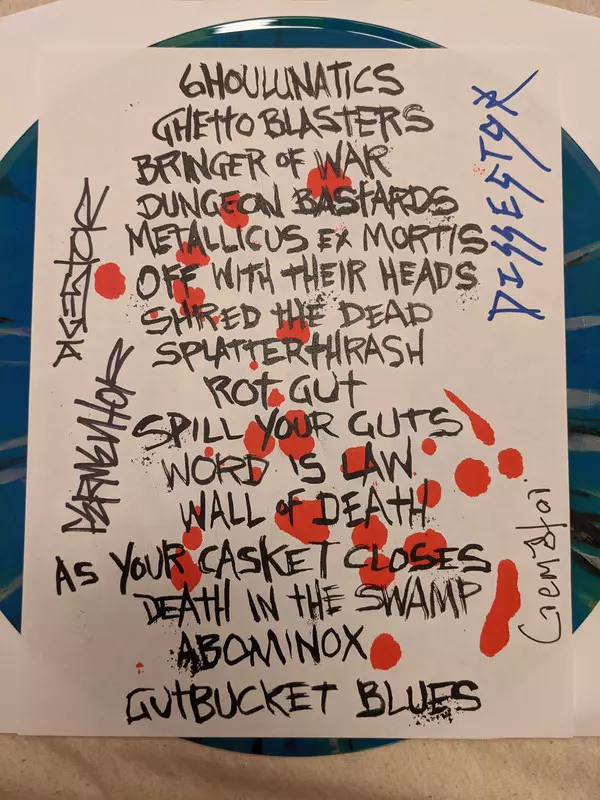 GHOULUNATICS
GHETTO BLASTERS
BRINGER OF WAR
DUNGEON BASTARDS
METALLICUS EX MORTIS
OFF WITH THEIR HEADS
SHRED THE DEAD
SPLATTERTHRASH
ROT GUT
SPILL YOUR GUTS
WORD IS LAW
WALL OF DEATH
AS YOUR CASKET CLOSES
DEATH IN THE SWAMP
ABOMINOX
GUTBUCKET BLUES
DIGESTOR
FERMENTOR
DISSECTOR
Cremator